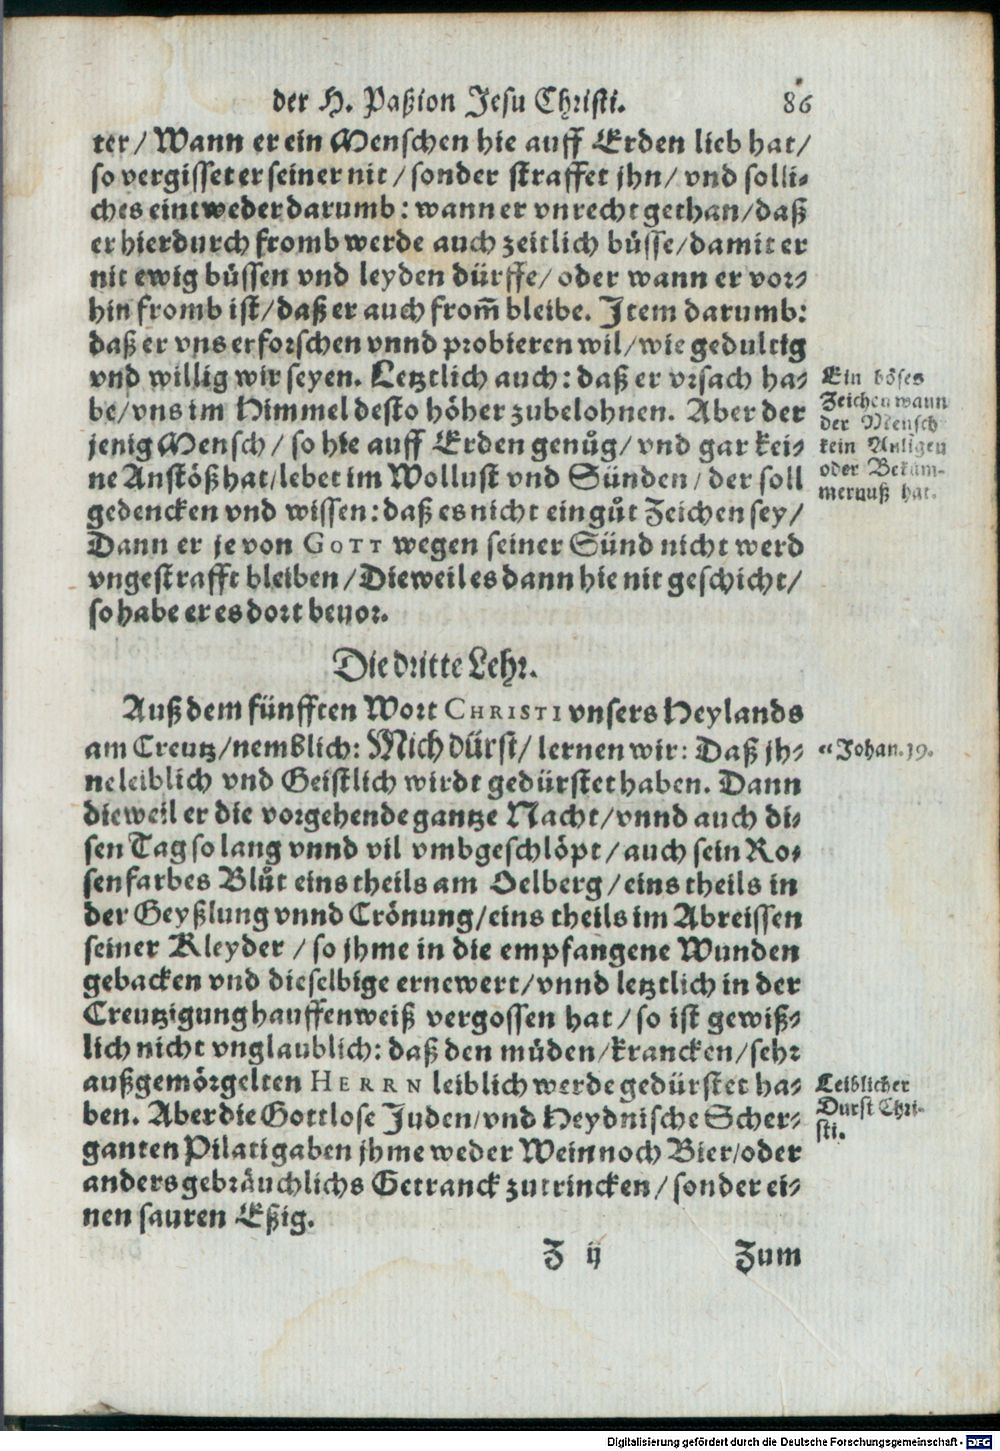 der H. Paßion Jesu Christi. 86
ter/ Wann er ein Menschen hie auff Erden lieb hat/
so vergisset er seiner nit/ sonder straffet jhn/ vnd solli-
ches eintweder darumb: wann er vnrecht gethan/ daß
er hierdurch fromb werde auch zeitlich büsse/ damit er
nit ewig büssen vnd leyden dürffe/ oder wann er vor-
hin fromb ist/ daß er auch from̃ bleibe. Item darumb:
daß er vns erforschen vnnd probieren wil/ wie gedultig
vnd willig wir seyen. Letztlich auch: daß er vrsach ha-
be/ vns im Himmel desto höher zubelohnen. Aber der
jenig Mensch/ so hie auff Erden genůg/ vnd gar kei-
ne Anstöß hat/ lebet im Wollust vnd Sünden/ der soll
gedencken vnd wissen: daß es nicht ein gůt Zeichen sey/
Dann er je von GOTT wegen seiner Sünd nicht werd
vngestrafft bleiben/ Dieweil es dann hie nit geschicht/
so habe er es dort beuor.
Ein böses
Zeichen wann
der Mensch
kein Anligen
oder Beküm-
mernuß hat.
Die dritte Lehr.
Auß dem fünfften Wort CHRISTI vnsers Heylands
am Creutz/ nemblich: Mich dürst/ lernen wir: Daß jh-
ne leiblich vnd Geistlich wirdt gedürstet haben. Dann
dieweil er die vorgehende gantze Nacht/ vnnd auch di-
sen Tag so lang vnnd vil vmbgeschlöpt/ auch sein Ro-
senfarbes Blůt eins theils am Oelberg/ eins theils in
der Geyßlung vnnd Crönung/ eins theils im Abreissen
seiner Kleyder/ so jhme in die empfangene Wunden
gebacken vnd dieselbige ernewert/ vnnd letztlich in der
Creutzigung hauffenweiß vergossen hat/ so ist gewiß-
lich nicht vnglaublich: daß den müden/ krancken/ sehr
außgemörgelten HERRN leiblich werde gedürstet ha-
ben. Aber die Gottlose Juden/ vnd Heydnische Scher-
ganten Pilati gaben jhme weder Wein noch Bier/ oder
anders gebräuchlichs Getranck zutrincken/ sonder ei-
nen sauren Eßig.
Johan. 19.
Leiblicher
Durst Chri-
sti.
Z ij Zum
Digitalisierung gefördert durch die Deutsche Forschungsgemeinschaft - DFG